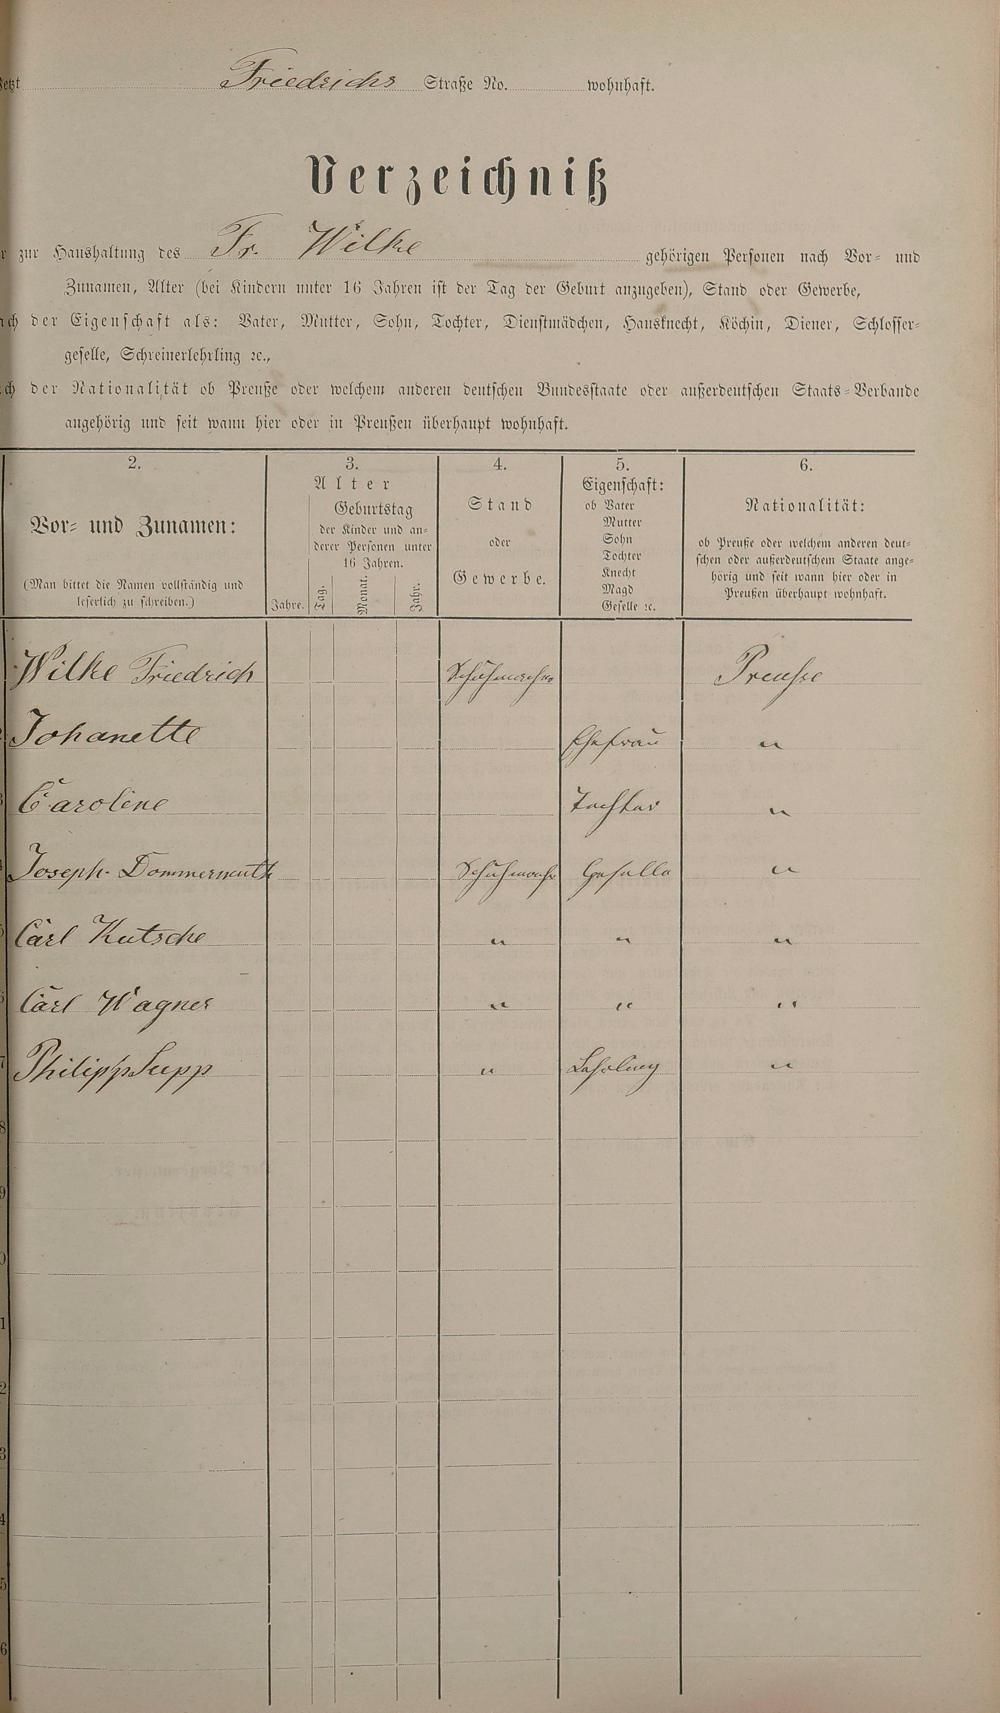 Jetzt Friedrichs Straße No. wohnhaft.
Verzeichniß
zur Haushaltung des Fr. Wilke gehörigen Personen nach Vor- und
Zunamen, Alter (bei Kindern unter 16 Jahren ist der Tag der Geburt anzugeben), Stand oder Gewerbe,
der Eigenschaft als: Vater, Mutter, Sohn, Tochter, Dienstmädchen, Hausknecht, Köchin, Diener, Schlosser-
geselle, Schreinerlehrling ꝛc.,
der Nationalität ob Preuße oder welchem anderen deutschen Bundesstaate oder außerdeutschen Staats-Verbande
angehörig und seit wann hier oder in Preußen überhaupt wohnhaft.
2.
Vor- und Zunamen:
(Man bittet die Namen vollständig und
leserlich zu schreiben.)
3.
Alter
Geburtstag
der Kinder und an-
derer Personen unter
16 Jahren.
Jahre. Tag. Monat. Jahr.
4.
Stand
oder
Gewerbe.
5.
Eigenschaft:
ob Vater
Mutter
Sohn
Tochter
Knecht
Magd
Geselle ꝛc.
6.
Nationalität:
ob Preuße oder welchem anderen deut-
schen oder außerdeutschem Staate ange-
hörig und seit wann hier oder in
Preußen überhaupt wohnhaft.
Wilke Friedrich Schuhmacher Preuße
2 Johanette Ehefrau "
3 Caroline Tochter "
4 Joseph Dommermuth Schuhmach Geselle "
5 Carl Kutsche " " "
6 Carl Wagner " " "
7 Philipp Supp " Lehrling "
8
9
0
1
2
3
4
5
6